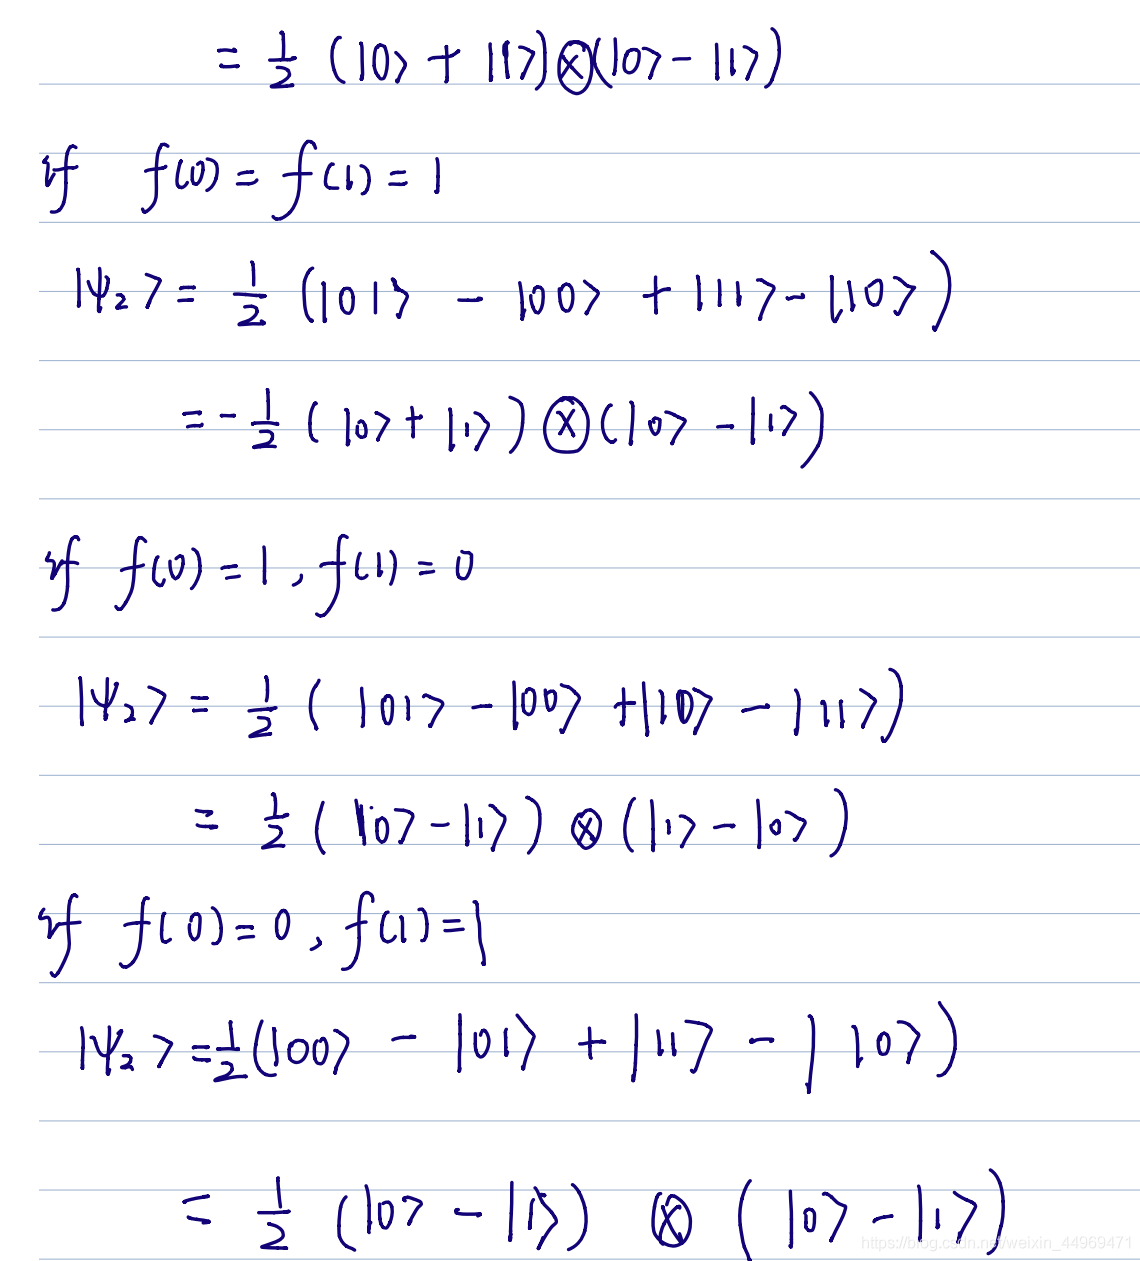 = 1/2 (|0⟩ + |1⟩)⊗(|0⟩ - |1⟩)
if f(0) = f(1) = 1
|ψ₂⟩ = 1/2 (|01⟩ - |00⟩ + |11⟩ - |10⟩)
= - 1/2 (|0⟩ + |1⟩) ⊗ (|0⟩ - |1⟩)
if f(0) = 1, f(1) = 0
|ψ₂⟩ = 1/2 (|01⟩ - |00⟩ + |10⟩ - |11⟩)
= 1/2 (|0⟩ - |1⟩) ⊗ (|1⟩ - |0⟩)
if f(0) = 0, f(1) = 1
|ψ₂⟩ = 1/2 (|00⟩ - |01⟩ + |11⟩ - |10⟩)
= 1/2 (|0⟩ - |1⟩) ⊗ (|0⟩ - |1⟩)
https://blog.csdn.net/weixin_44969471